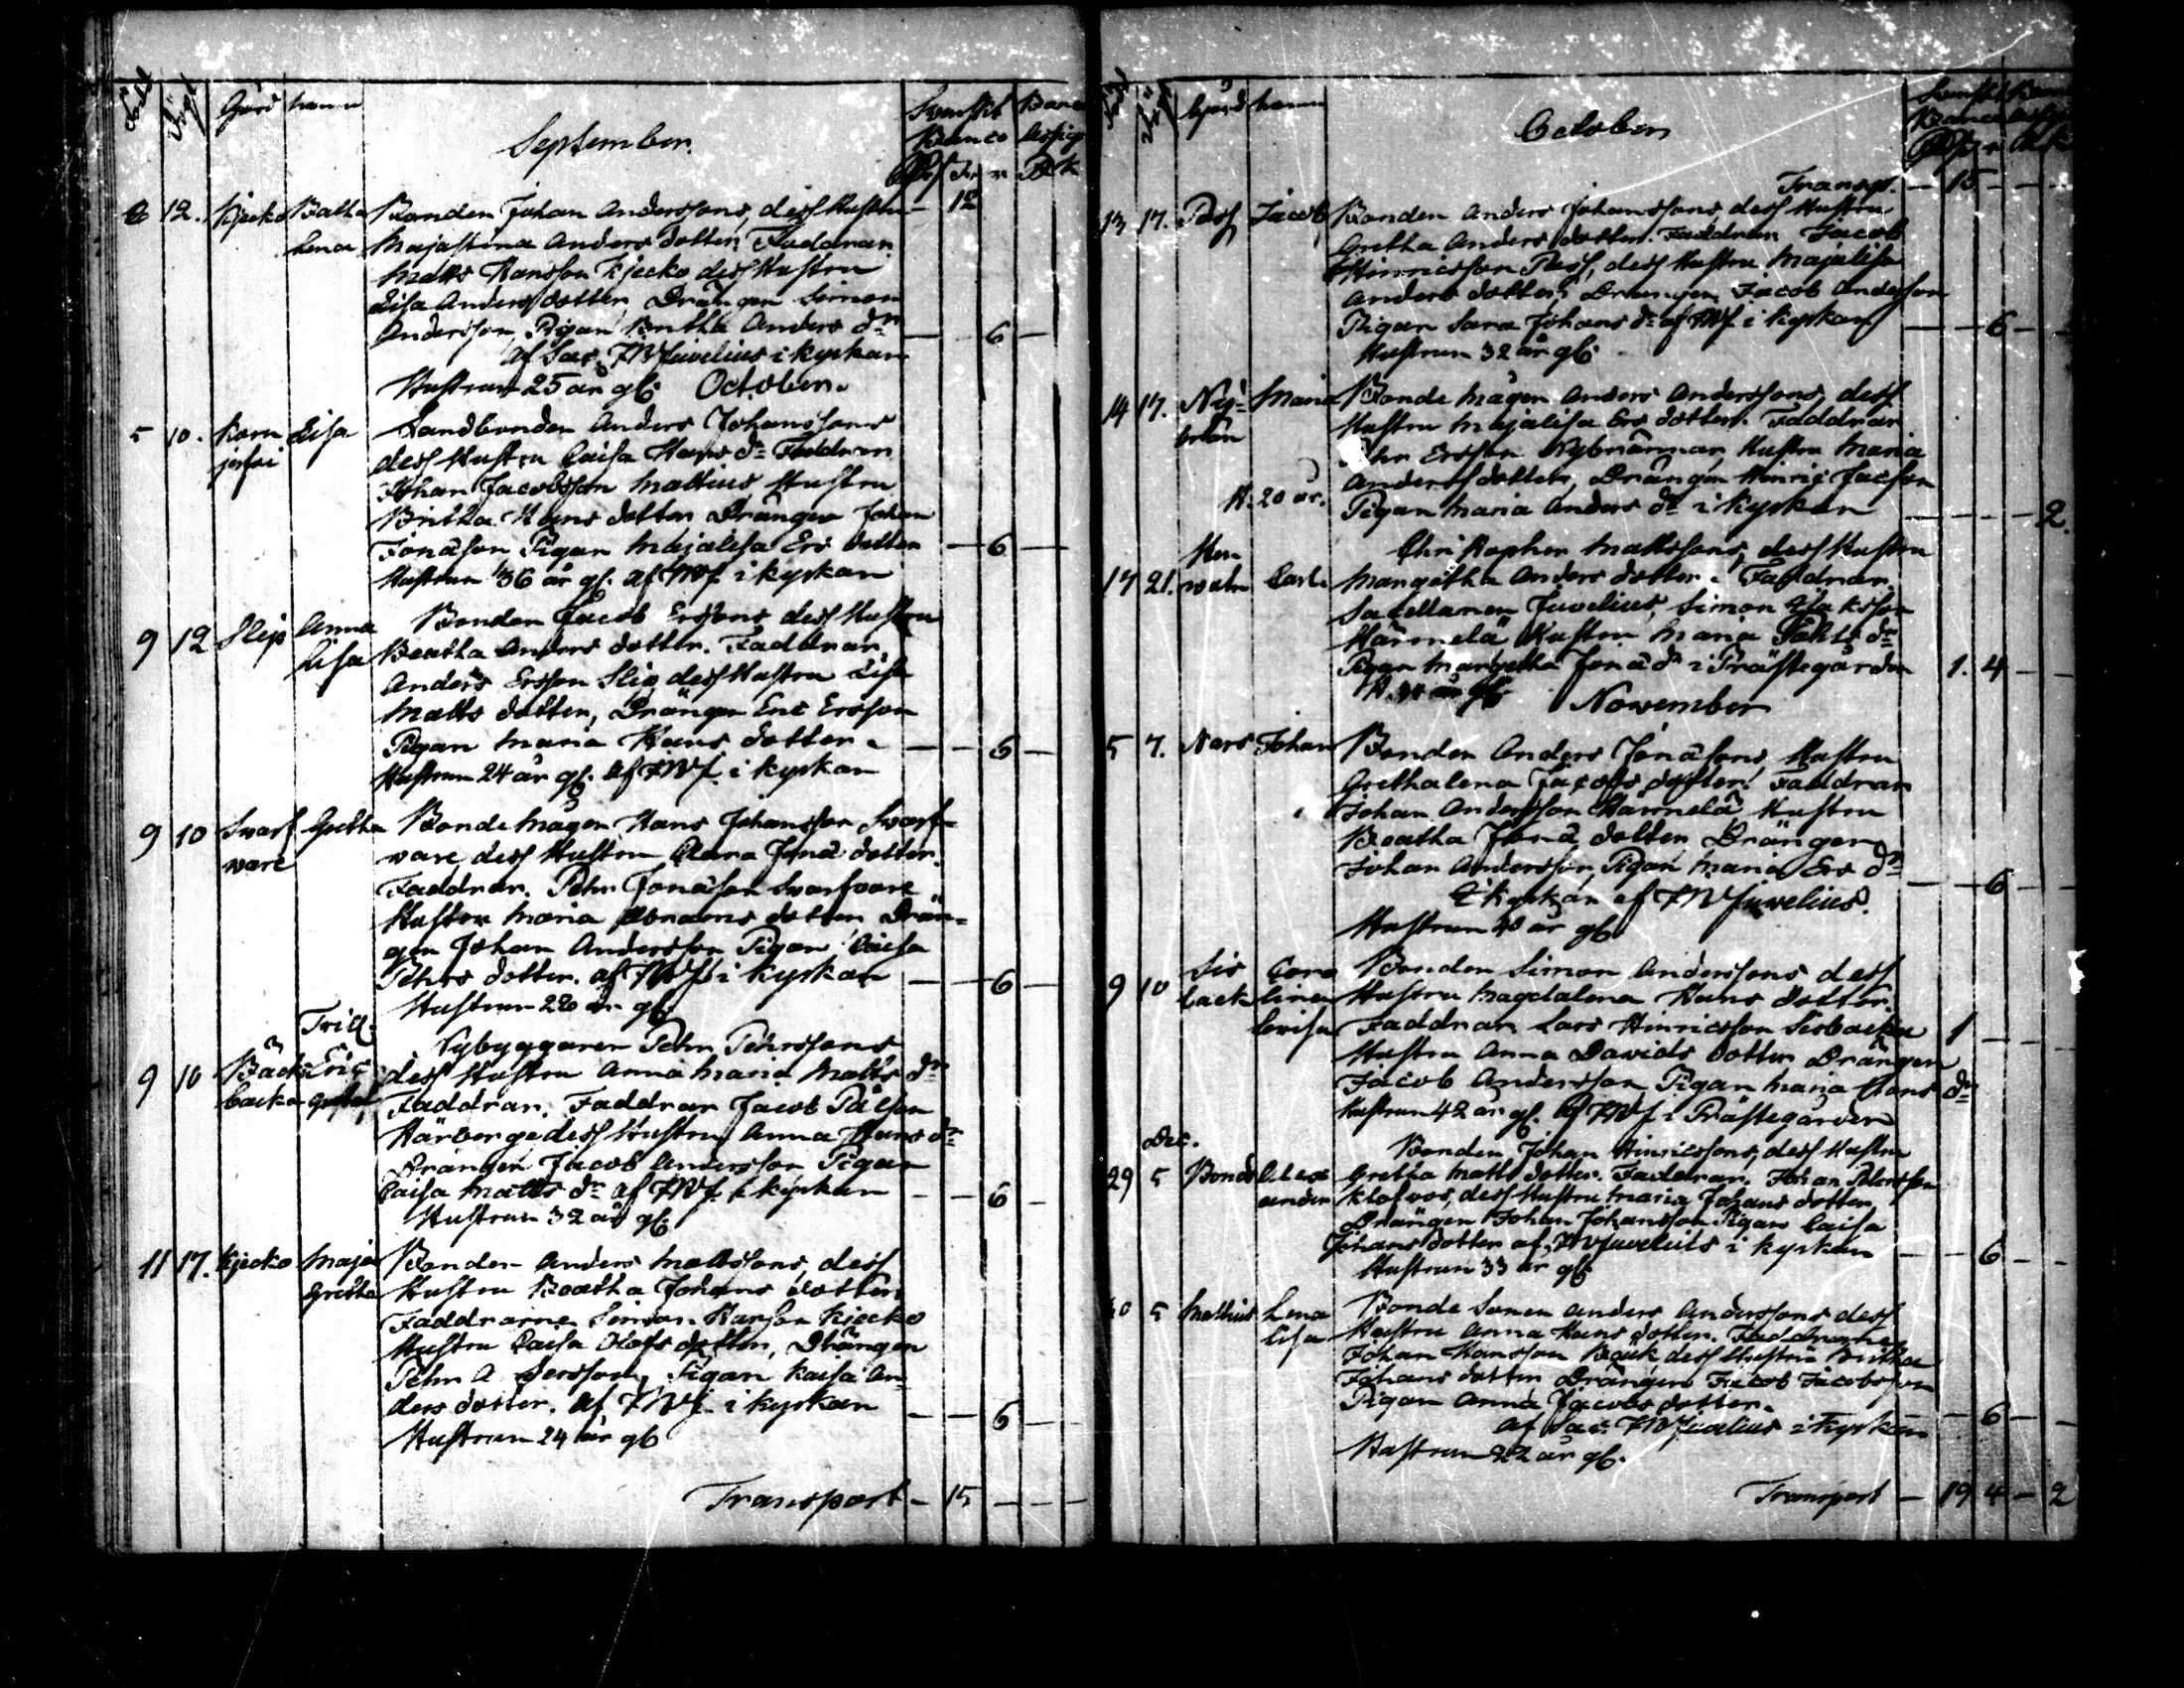 Född Döpt Gård namn
September.
Svenskt Banco
12. Kjecko Beatha Bonden Johan Anderssons, dess Hustru – 12
Lena Majastina Anders dotter, Faddrar
Matts Hansson Kjecko dess Hustru
Lisa Anders dotter, Drängen Simon
Andersson, Pigan Britha Anders dr — 6 —
af Sac. FWJuvelius i kyrkan
Hustrun 25 år gl. October.
5 10. Korn Lisa Landbonden Anders Johanssons
dess Hustru Caisa Hans dr Faddrar
Johan Jacobsson Mattius Hustru
Britha Hans dotter Drängen Johan
Jonasson Pigan Majalisa Ers dotter — 6 —
Hustrun 36 år gl. af FWJ. i kyrkan
9 12 Slip Anna Bonden Jacob Erssons dess Hustru
Lisa Beatha Anders dotter. Faddrar
Anders Ersson Slip dess Hustru Lisa
Matts dotter, Drängen Eric Ersson
Pigan Maria Hans dotter. — — 6 —
Hustrun 24 år gl. af FWJ. i kyrkan
9 10 Svarf Gretha Bonde mågen Hans Johansson Svarf-
vare vare, dess Hustru Clara Jona dotter.
Faddrar. Pehr Jonasson Svarfvare
Hustru Maria Abrams dotter Drän-
gen Johan Andersson Pigan Caisa
Pehrs dotter. af FWJ i kyrkan — — 6 —
Hustrun 220 år gl.
Trill.
Nybyggaren Pehr Pehrssons
9 10 Backs Eric dess Hustru Anna Maria Matts dr
backa Faddrar. Faddrar Jacob Pålson
Härberge dess Hustru Anna Hans dr
Drängen Jacob Andersson Pigan
Caisa Matts dr af FWJ. i kyrkan – – 6 –
Hustrun 32 år gl.
11 17. Kjecko Maja Bonden Anders Mattssons, dess
Gretha Hustru Beatha Johans dotter
Faddrarne Simon Hansson Kjecko
Hustru Caisa Olofs dotter, Drängen
Pehr A dersson, Pigan Kaisa An-
ders dotter. af FWJ. i kyrkan – – 6 –
Hustrun 24 år gl
Transport – 15 – – –
Gård namn
October
Transp. – 15 – – –
13 17. Pass Jacob Bonden Anders Johanssons, dess Hustru
Gretha Anders dotter. Faddrar Jacob
Hinricsson Pass, dess Hustru Majalisa
Anders dotter, Drängen Jacob Andersson
Pigan Sara Johans dr af FWJ. i kyrkan — — 6 —
Hustrun 32 år gl.
14 17. Ny- Maria Bonde mågen Anders Anderssons, dess
brän Hustru Majalisa Ers dotter. Faddrar
Pehr Ersson Nybrännar Hustru Maria
Anders dotter, Drängen Hinric Jacsson
H. 20 år. Pigan Maria Anders dr i kyrkan – – – – 2.
Christopher Mattssons, dess Hustru
17 21. Carl Margetha Anders dotter. Faddrar
Sacellanen Juvelius, Simon Isaksson
Härmelä Hustru Maria dr
Pigan Margetha Jona dr i Prästegården 1. 4 – –
November
5 7. Nars Johan Bonden Anders Jonasons Hustru
Grethalena Jacobs dotter! Faddrar
Johan Andersson Harmelä Hustru
Beatha Jona dotter, Drängen
Johan Andersson, Pigan Maria Ers dr — — 6 —
i kyrkan af FWJuvelius.
Hustrun 40 år gl
9 10 Sis Caro Bonden Simon Anderssons dess
back lina Hustru Magdalena Hans dotter.
Lovisa Faddrar Lars Hinricsson Sisbacka 1 – – –
Hustru Anna Davids dotter Drängen
Jacob Andersson Pigan Maria Hans dr
Hustrun 42 år gl. af FWJ i Prästegården
Dec.
Bonden Johan Hinricssons, dess Hustru
29 5 Bonds Alex Gretha Matts dotter. Faddrar. Johan Petersson
ander Klåfvos, dess Hustru Maria Johans dotter
Drängen Johan Johansson Pigan Caisa
Johans dotter af FWJuvelius i kyrkan – – 6 – –
Hustrun 33 år gl.
5 Mattius Lena Bonde Sonen Anders Anderssons dess
Lisa Hustru Anna Hans dotter. Faddrarne
Johan Hansson Back dess Hustru Britha
Johans dotter Drängen Jacob Jacobsson
Pigan Anna Jacobs dotter.
af Sac. FWJuvelius i kyrkan – – 6 – –
Hustrun 22 år gl.
Transport – 19 4 – 2